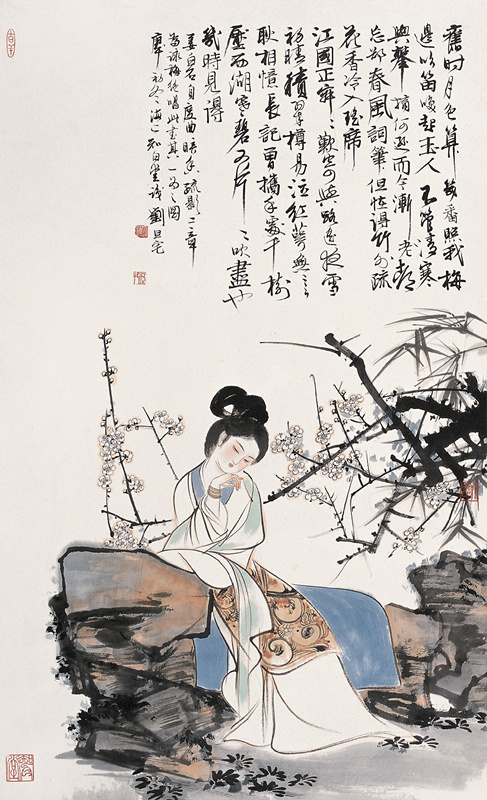 舊時月色算幾番照我梅
邊吹笛喚起玉人不管清寒
與攀摘何遜而今漸老都
忘却春風詞筆但怪得竹外疏
花香冷入瑤席
江國正寂〻歎寄與路遙夜雪
初積翠樽易泣紅萼無言
耿相憶長記曾攜手處千樹
壓西湖寒碧又片〻吹盡也
幾時見得
姜白石自度曲暗香疏影二章
為詠梅絕唱此其一為之圖
初冬海上知白堂識劉旦宅